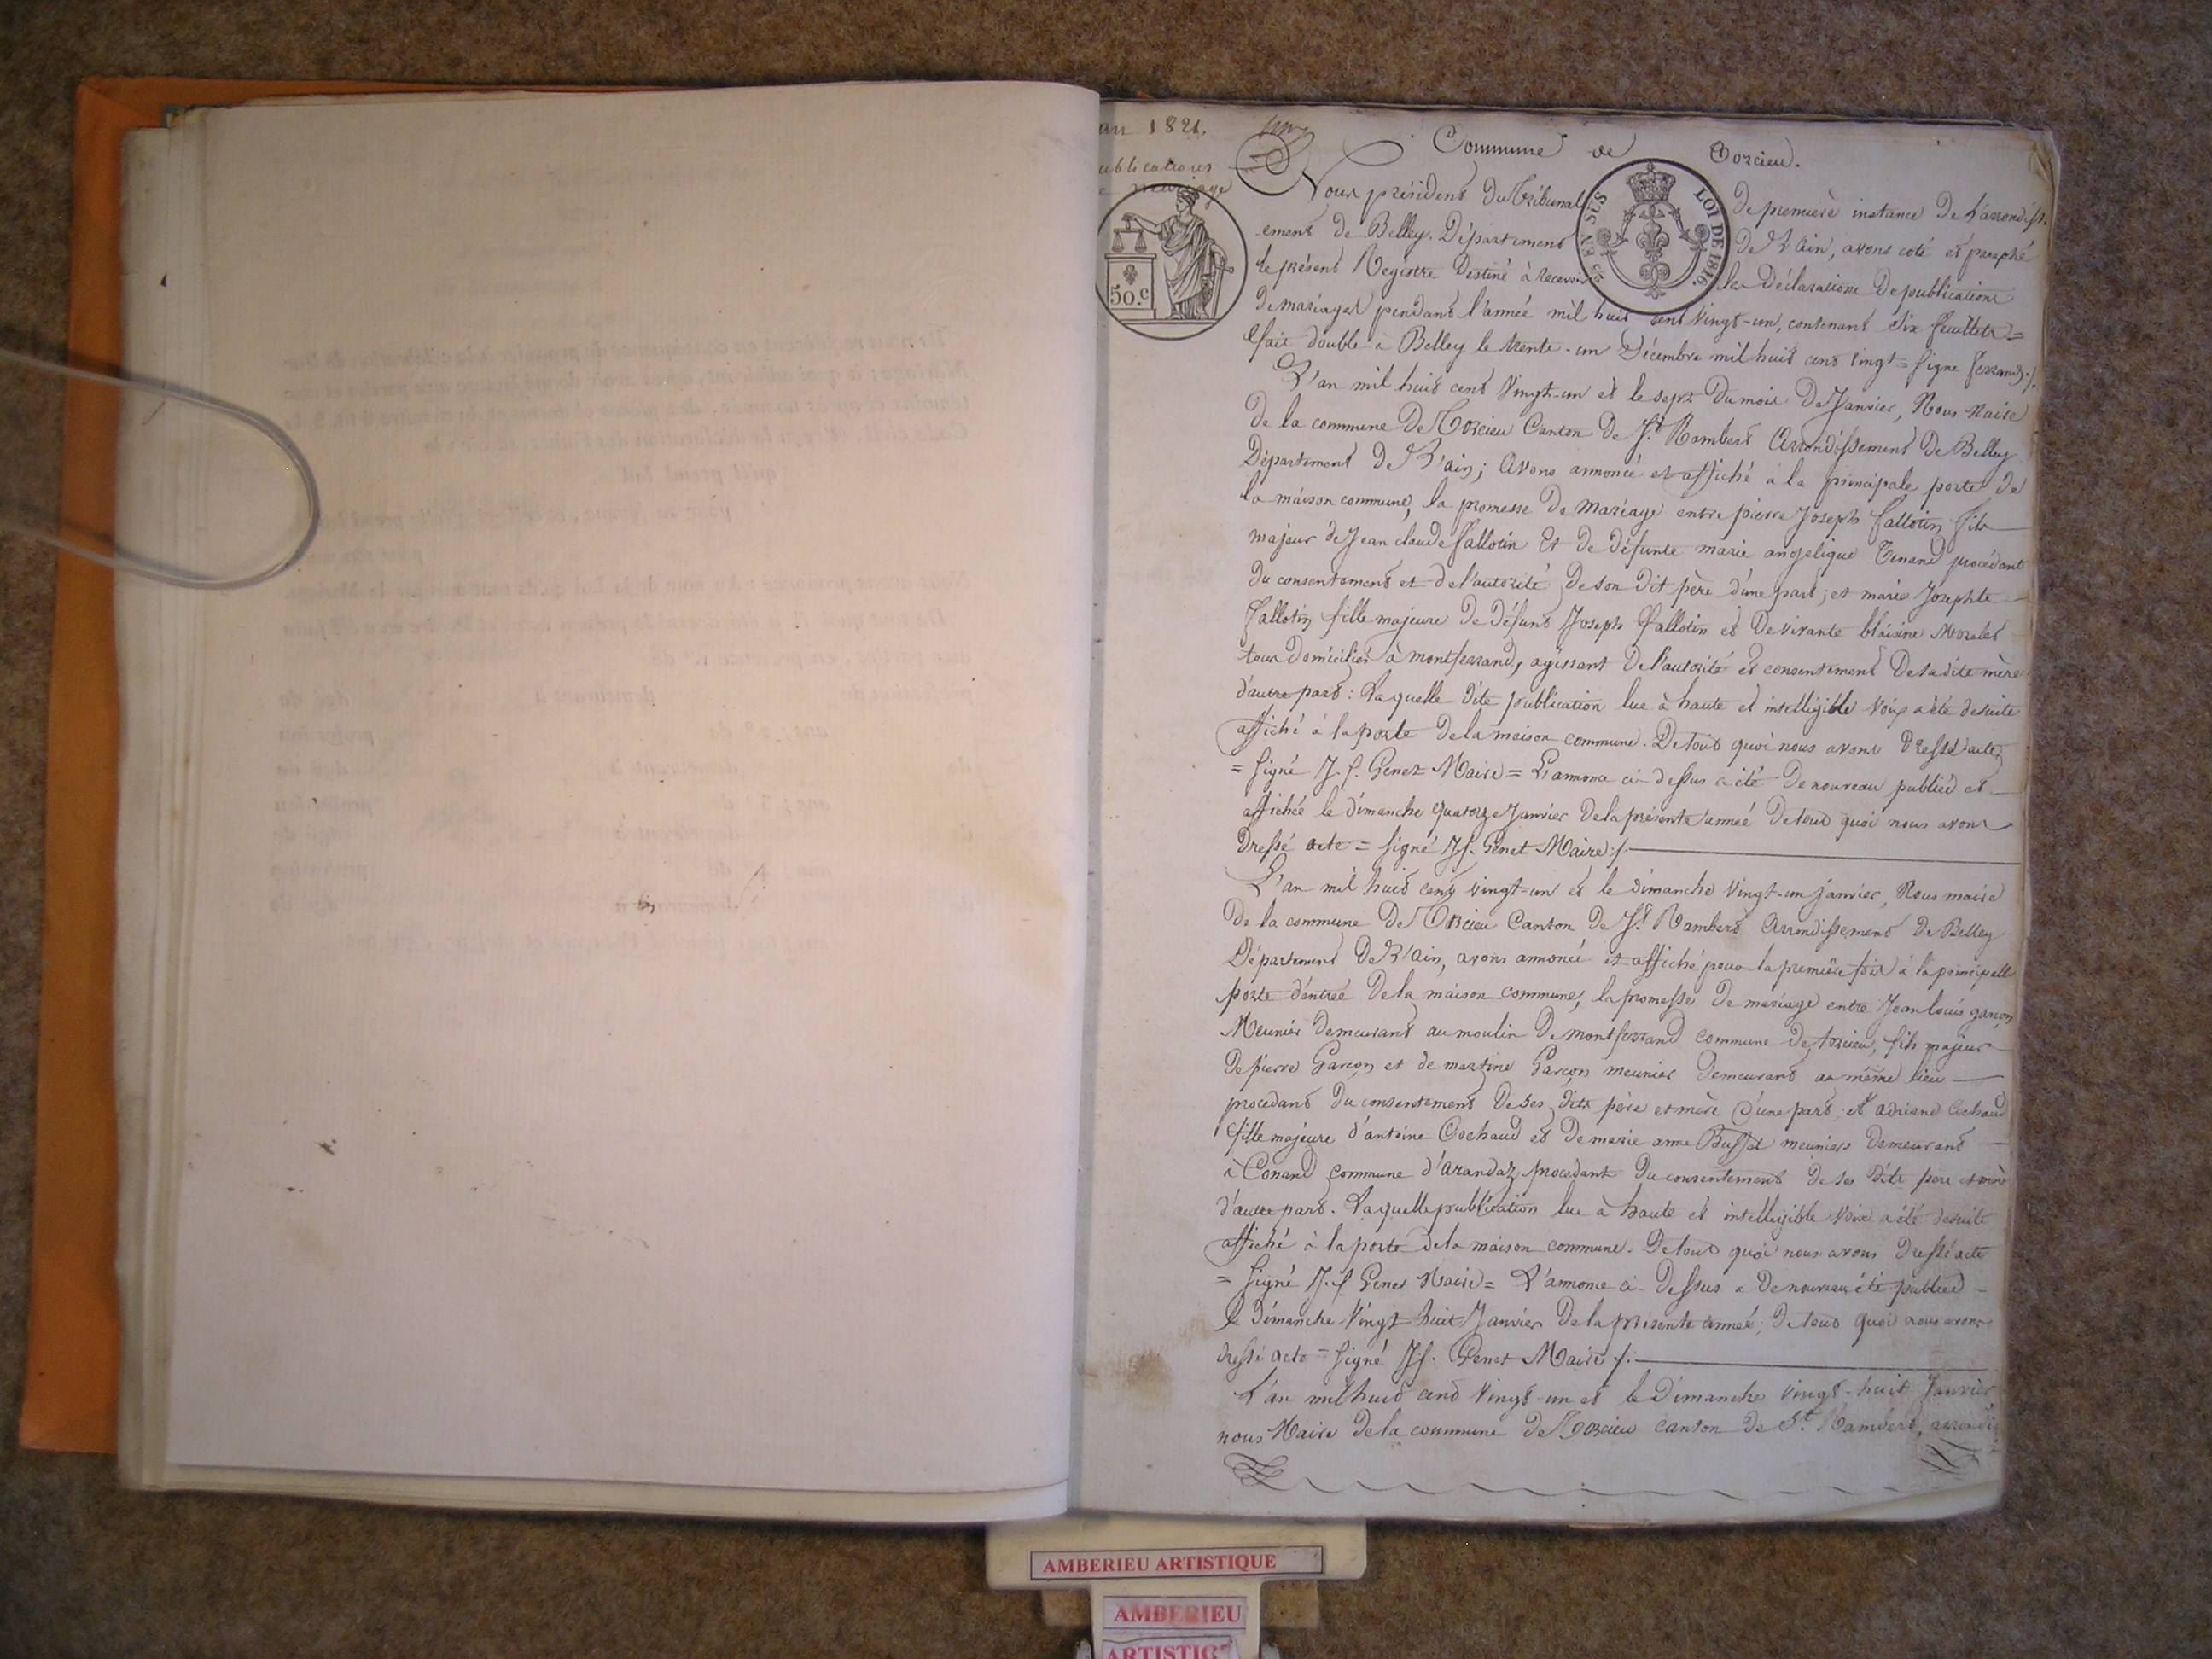 an 1821.
ublications
e mariage
50.c
EN SUS
LOI DE 1816.
Commune de Torcieu.
Nous président du Tribunal de première instance de L'arrondiss-
ement de Belley, Département de L'Ain, avons coté et paraphé
le présent Registre destiné à recevoir les Déclarations de publications
de mariages pendant l'année mil huit cent vingt-un, contenant six feuillets =
fait double à Belley le trente-un Décembre mil huit cent vingt = Signé Ferrand ./.
L'an mil huit cent vingt-un et le sept du mois de Janvier, Nous Maire
de la commune de Torcieu Canton de St. Rambert Arrondissement de Belley
Département de L'ain; Avons annoncé et affiché à la principale porte de
la maison commune, la promesse de Mariage entre pierre Joseph fallotin fils
majeur de Jean claude fallotin Et de défunte marie angelique Tenand procédant
du consentement et de l'autorité de son dit père d'une part; et marie Josephte
fallotin fille majeure de défunt Joseph fallotin et de vivante blaisine Morelet
tous domiciliés à montferrand, agissant de l'autorité et consentement de sa dite mère
d'autre part : Laquelle dite publication lue à haute et intelligible voix a été de suite
affiché à la porte de la maison commune. De tout quoi nous avons dressé acte
= Signé J. f. Genet Maire = L'annonce ci-dessus a été de nouveau publiée et
affichée le dimanche quatorze Janvier de la présente année de tout quoi nous avons
dressé acte = Signé Jf. Genet Maire ./.
L'an mil huit cent vingt-un et le dimanche vingt-un janvier, Nous maire
de la commune de Torcieu Canton de St. Rambert Arrondissement de Belley
Département de L'Ain, avons annoncé et affiché pour la première fois à la principalle
porte d'entrée de la maison commune, la promesse de mariage entre Jean louis garçon
Meunier demeurant au moulin de montferrand commune de torcieu, fils majeur
de pierre Garçon et de martine Garçon meunier demeurant au même lieu
procedant du consentement de ses dits père et mère d'une part; et adriane Cochaud
fille majeure d'antoine Cochaud et de marie anne Busset meuniers demeurant
à Conand commune d'arandaz procedant du consentement de ses dits père et mère
d'autre part. Laquelle publication lue à haute et intelligible voix a été de suite
affiché à la porte de la maison commune. De tout quoi nous avons dressé acte
= Signé J. f Genet Maire = L'annonce ci-dessus a de nouveau été publiée
le dimanche vingt huit Janvier de la présente année; de tout quoi nous avons
dressé acte = Signé Jf. Genet Maire ./.
L'an mil huit cent vingt-un et le dimanche vingt-huit Janvier
nous Maire de la commune de Torcieu canton de St. Rambert, arrondis
AMBERIEU ARTISTIQUE
AMBERIEU
ARTISTIQ